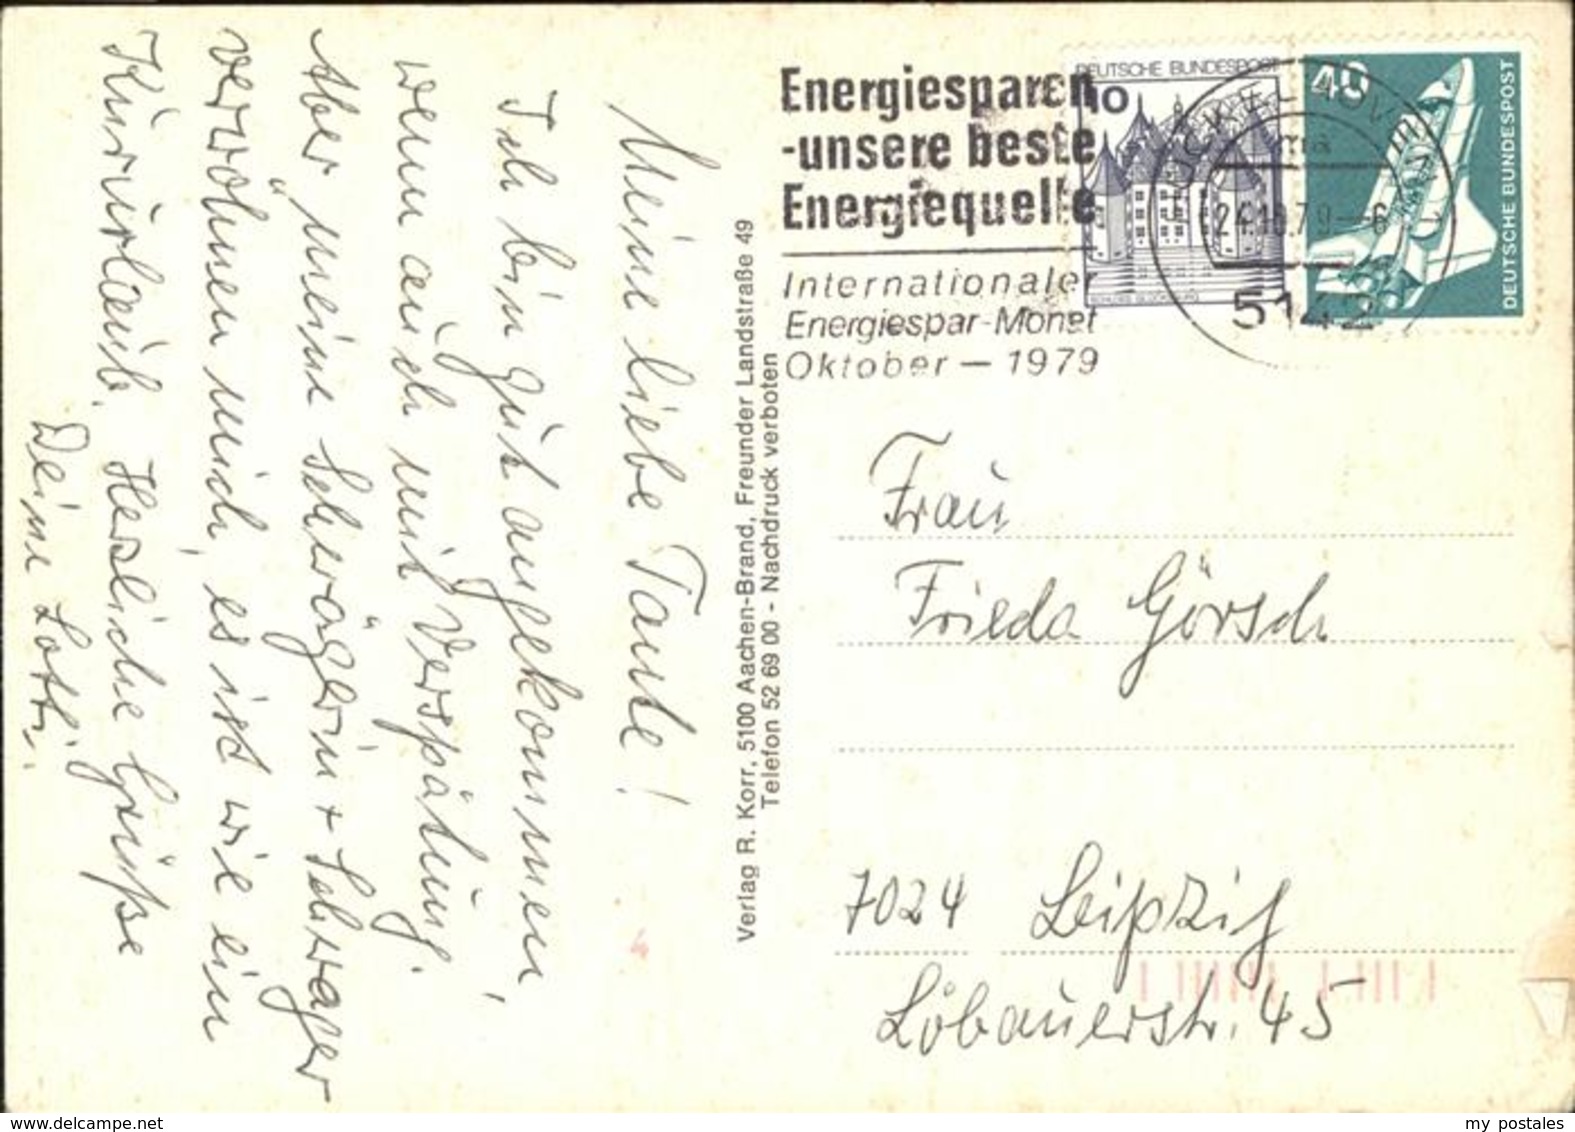 Meine liebe Tante!
Ich bin gut angekommen,
wenn auch mit Verspätung.
Aber meine Schwägerin + Schwager
verwöhnen mich, es ist wie ein
Kurürlaub. Herzliche Grüße
Deine Lotti.
Verlag R. Korr, 5100 Aachen-Brand, Freunder Landstraße 49
Telefon 52 69 00 - Nachdruck verboten
Energiesparen
-unsere beste
Energiequelle
Internationaler
Energiespar-Monat
Oktober — 1979
DEUTSCHE BUNDESPOST
10
SCHLOSS GLÜCKSBURG
40
DEUTSCHE BUNDESPOST
24.10.79-6
5142
Frau
Frieda Görsch
7024 Leipzig
Löbauerstr. 45
4
my postales